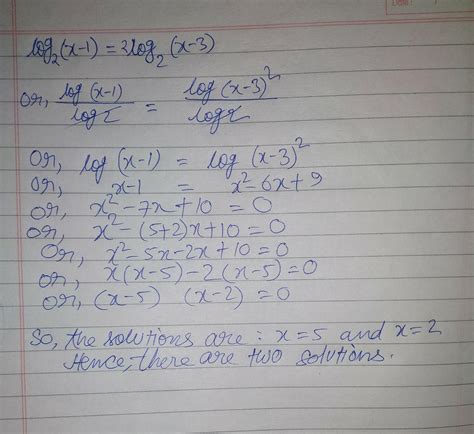 Date:
log₂(x-1) = 2log₂ (x-3)
or, log (x-1) / log 2 = log (x-3)² / log 2
or, log (x-1) = log (x-3)²
or, x-1 = x²-6x+9
or, x²-7x+10 = 0
or, x²-(5+2)x+10=0
or, x²-5x-2x+10=0
or, x(x-5)-2(x-5)=0
or, (x-5) (x-2)=0
So, the solutions are: x=5 and x=2
Hence, there are two solutions.